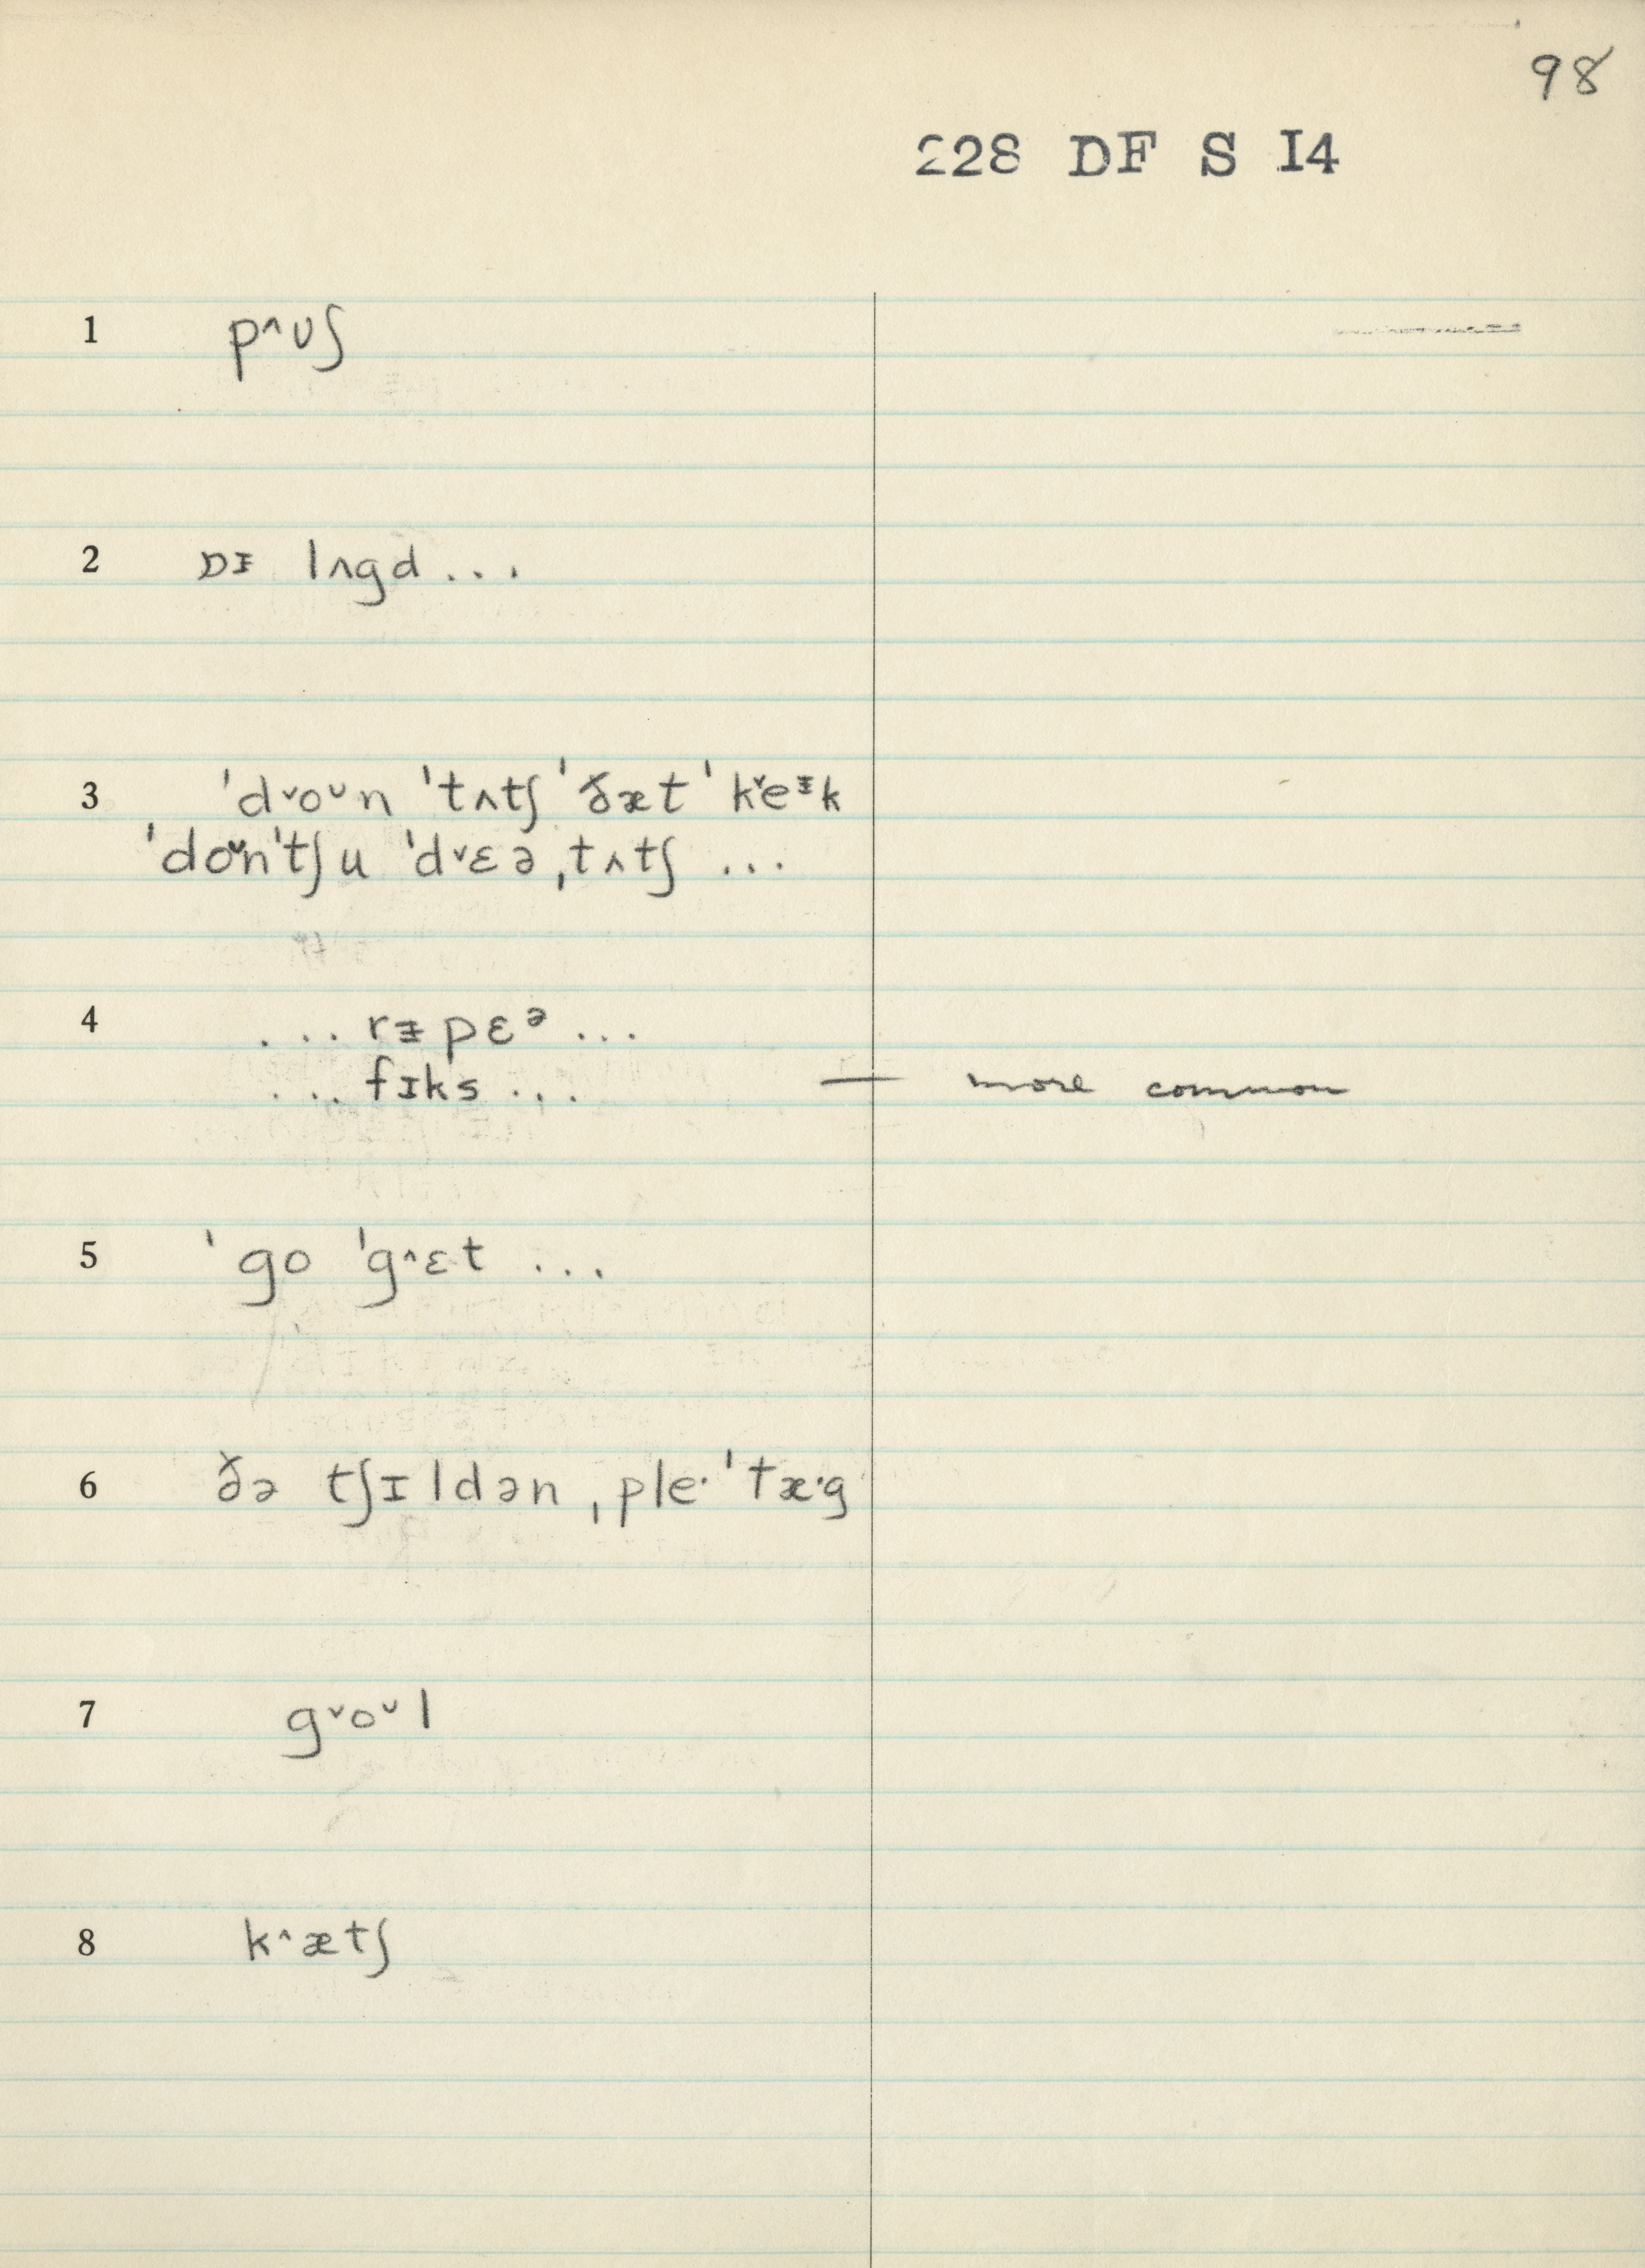 98
228 DF S I4
1 p^ʊʃ
2 DɪE lʌgd...
3 ˈdˇoᴜn ˈtʌtʃ ˈðæt ˈkˇeᵻk
ˈdoᴜnˈtʃu ˈdˇɛə ˌtʌtʃ ...
4 ... rᵻpɛᵊ ...
... fɪks ... — more common
5 ˈgo ˈg^ɛt ...
6 ðə tʃɪldən ˌple· ˈtæ·g
7 gˇoᴜl
8 k^ætʃ